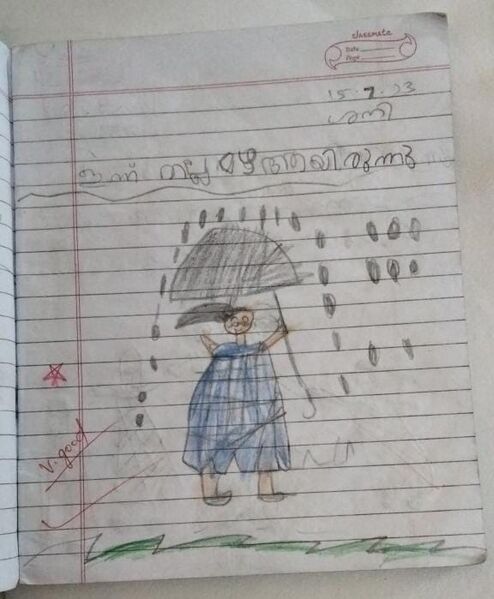 classmate
Date
Page
15.7.23
ശനി
ഇന്ന് നല്ല മഴ ആയിരുന്നു
V. good